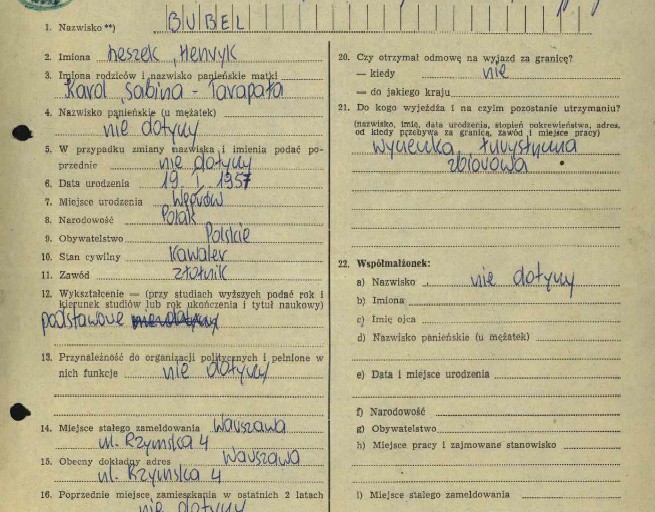 1. Nazwisko **) BUBEL
2. Imiona Leszek, Henryk
3. Imiona rodziców i nazwisko panieńskie matki
Karol, Sabina - Tarapata
4. Nazwisko panieńskie (u mężatek)
nie dotyczy
5. W przypadku zmiany nazwiska i imienia podać po-
przednie nie dotyczy
6. Data urodzenia 19. I. 1957
7. Miejsce urodzenia Węgrów
8. Narodowość Polak
9. Obywatelstwo Polskie
10. Stan cywilny Kawaler
11. Zawód złotnik
12. Wykształcenie — (przy studiach wyższych podać rok i
kierunek studiów lub rok ukończenia i tytuł naukowy)
podstawowe
13. Przynależność do organizacji politycznych i pełnione w
nich funkcje nie dotyczy
14. Miejsce stałego zameldowania Warszawa
ul. Rzymska 4
15. Obecny dokładny adres Warszawa
ul. Rzymska 4
16. Poprzednie miejsce zamieszkania w ostatnich 2 latach
nie dotyczy
20. Czy otrzymał odmowę na wyjazd za granicę?
— kiedy nie
— do jakiego kraju
21. Do kogo wyjeżdża i na czyim pozostanie utrzymaniu?
(nazwisko, imię, data urodzenia, stopień pokrewieństwa, adres,
od kiedy przebywa za granicą, zawód i miejsce pracy)
wycieczka turystyczna
zbiorowa
22. Współmałżonek:
a) Nazwisko nie dotyczy
b) Imiona
c) Imię ojca
d) Nazwisko panieńskie (u mężatek)
e) Data i miejsce urodzenia
f) Narodowość
g) Obywatelstwo
h) Miejsce pracy i zajmowane stanowisko
i) Miejsce stałego zameldowania